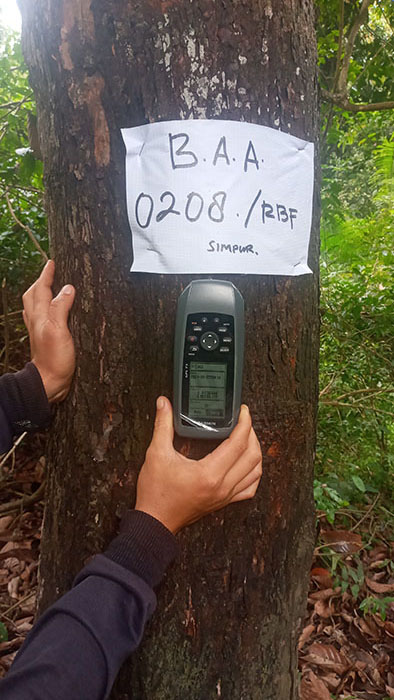 B.A.A.
0208./RBF
SIMPUR.